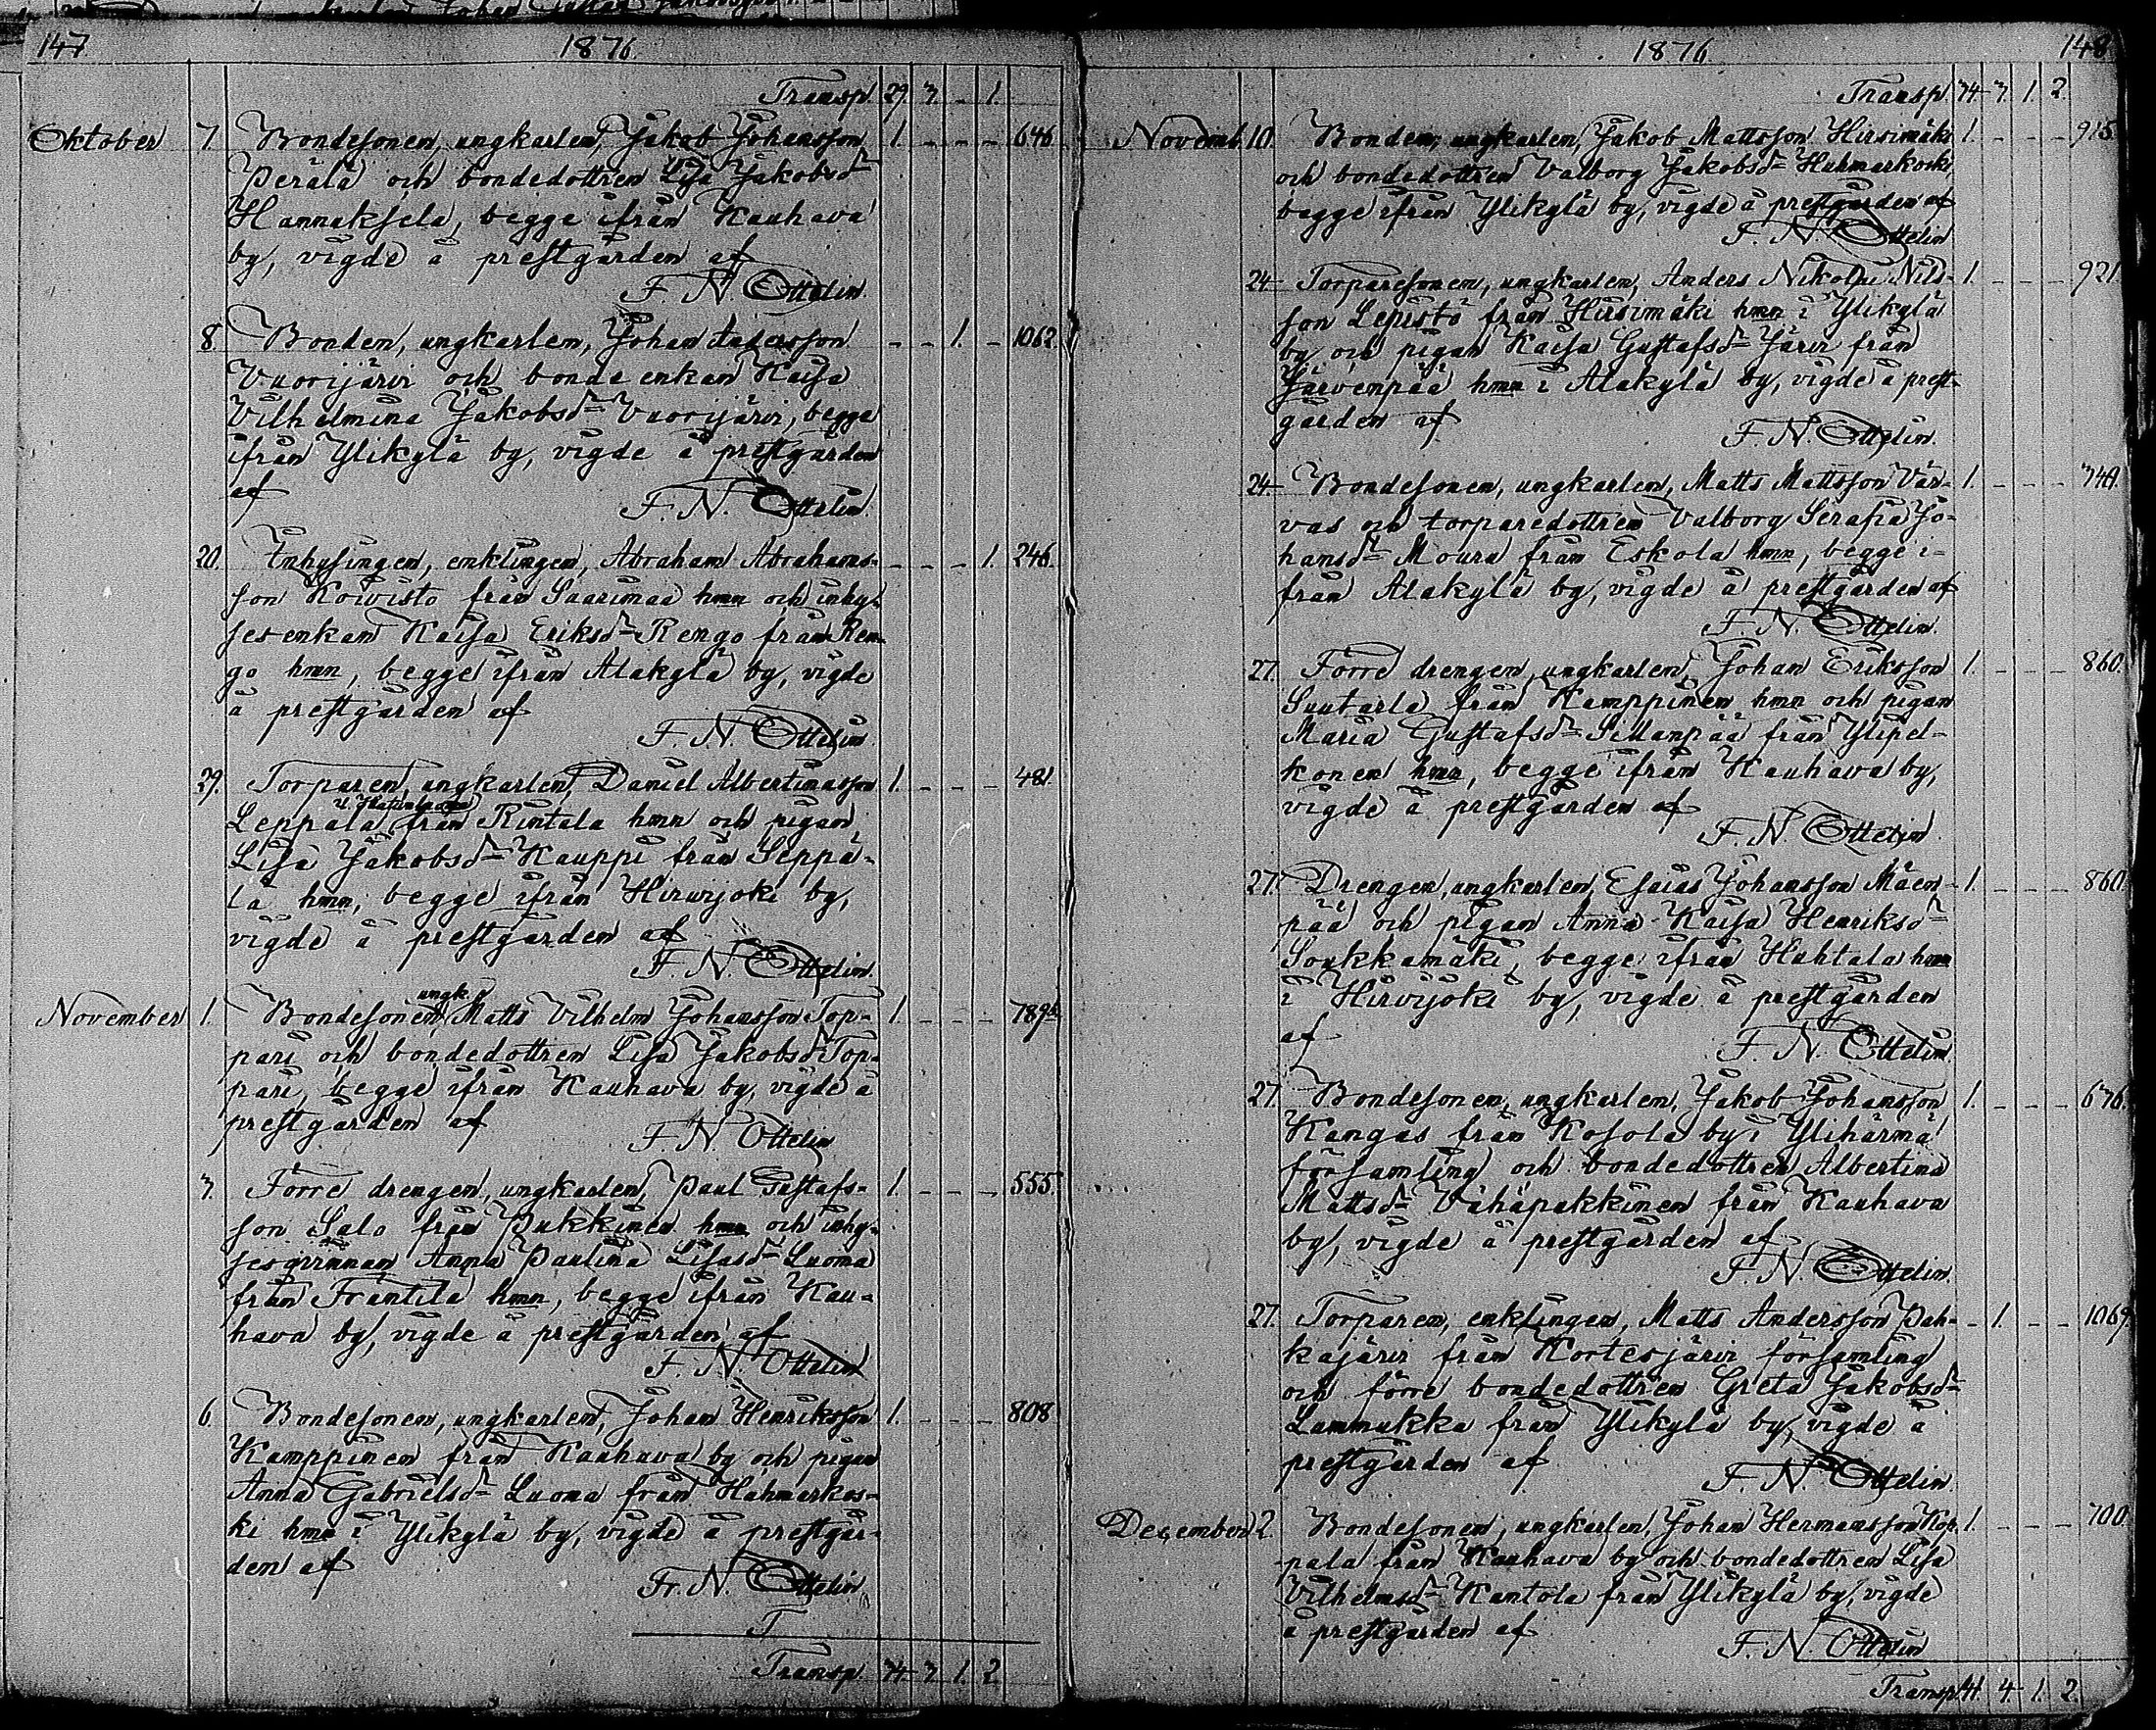 147.
1876.
Transp. 29. 3. - 1.
Oktober 7. Bondesonen, ungkarlen, Jakob Johansson 1. - - - 646.
Perälä och bondedottren Lisa Jakobsdr
Hannuksela, begge ifrån Kauhava
by, vigde å prestgården af
F. N. Ottelin.
8. Bonden, ungkarlen, Johan Andersson - - 1. - 1062.
Vuorijärvi och bonde enkan Kaisa
Vilhelmina Jakobsdr Vuorijärvi, begge
ifrån Ylikylä by, vigde å prestgården
af
F. N. Ottelin.
20. Inhysingen, enklingen, Abraham Abrahams- - - - 1. 246.
son Koivisto från Saarimaa hmn och inhy-
ses enkan Kaisa Eriksdr Rengo från Ren-
go hmn, begge ifrån Alakylä by, vigde
å prestgården af
F. N. Ottelin.
29. Torparen, ungkarlen, Daniel Albertinasson 1. - - - 481.
Leppälä från Rintala hmn och pigan
Lisa Jakobsdr Kauppi från Seppä-
lä hmn, begge ifrån Hirvijoki by,
vigde å prestgården af
F. N. Ottelin.
November 1. Bondesonen, ungk. Matts Vilhelm Johansson Top- 1. - - - 789
pari och bondedottren Lisa Jakobsdr Top-
pari, begge ifrån Kauhava by, vigde å
prestgården af
F. N. Ottelin
3. Förre drengen, ungkarlen, Paul Gustafs- 1. - - - 555.
son Salo från Pukkinen hmn och inhy-
sesqvinnan Anna Paulina Lisasdr Luoma
från Frantila hmn, begge ifrån Kau-
hava by, vigde å prestgården af
F. N. Ottelin
6. Bondesonen, ungkarlen, Johan Henriksson 1. - - - 808.
Kamppinen från Kauhava by och pigan
Anna Gabrielsdr Luoma från Hahmarkos-
ki hmn i Ylikylä by, vigde å prestgår-
den af
Fr. N. Ottelin.
T
Transp. 34. 3. 1. 2.
1876.
148.
Transp. 34. 3. 1. 2.
Novemb. 10. Bonden, ungkarlen, Jakob Mattsson Hirsimäki 1. - - - 925.
och bondedottren Valborg Jakobsdr Hahmarkoski,
begge ifrån Ylikylä by, vigde å prestgården af
F. N. Ottelin
24. Torparesonen, ungkarlen, Anders Nikolai Nils- 1. - - - 921.
son Lepistö från Hirsimäki hmn i Ylikylä
by och pigan Kaisa Gustafsdr Järvi från
Järvenpää hmn i Alakylä by, vigde å prest-
gården af
F. N. Ottelin.
24. Bondesonen, ungkarlen, Matts Mattsson Var- 1. - - -
vas och torparedottren Valborg Serafia Jo-
hansdr Moura från Eskola hmn, begge i-
från Alakylä by, vigde å prestgården af
F. N. Ottelin.
27. Förre drengen, ungkarlen, Johan Eriksson 1. - - - 860.
Suutarla från Kamppinen hmn och pigan
Maria Gustafsdr Sillanpää från Ylipel-
konen hmn, begge ifrån Kauhava by,
vigde å prestgården af
F. N. Ottelin
27. Drengen, ungkarlen, Esaias Johansson Mäen- 1. - - - 860.
pää och pigan Anna Kaisa Henriksdr
Soukkamäki, begge ifrån Huhtala hmn
i Hirvijoki by, vigde å prestgården
af
F. N. Ottelin.
27. Bondesonen, ungkarlen, Jakob Johansson 1. - - - 676.
Kangas från Kosola by i Ylihärmä
församling och bondedottren Albertina
Mattsdr Vähäpakkinen från Kauhava
by, vigde å prestgården af
F. N. Ottelin.
27. Torparen, enklingen, Matts Andersson Pah- - 1. - - 1069.
kajärvi från Kortesjärvi församling
och förre bondedottren Greta Jakobsdr
Lammukka från Ylikylä by, vigde å
prestgården af
F. N. Ottelin.
December 2. Bondesonen, ungkarlen, Johan Hermansson Kop- 1. - - - 700.
pala från Kauhava by och bondedottren Lisa
Vilhelmsdr Kantola från Ylikylä by, vigde
å prestgården af
F. N. Ottelin
Transp. 41. 4. 1. 2.